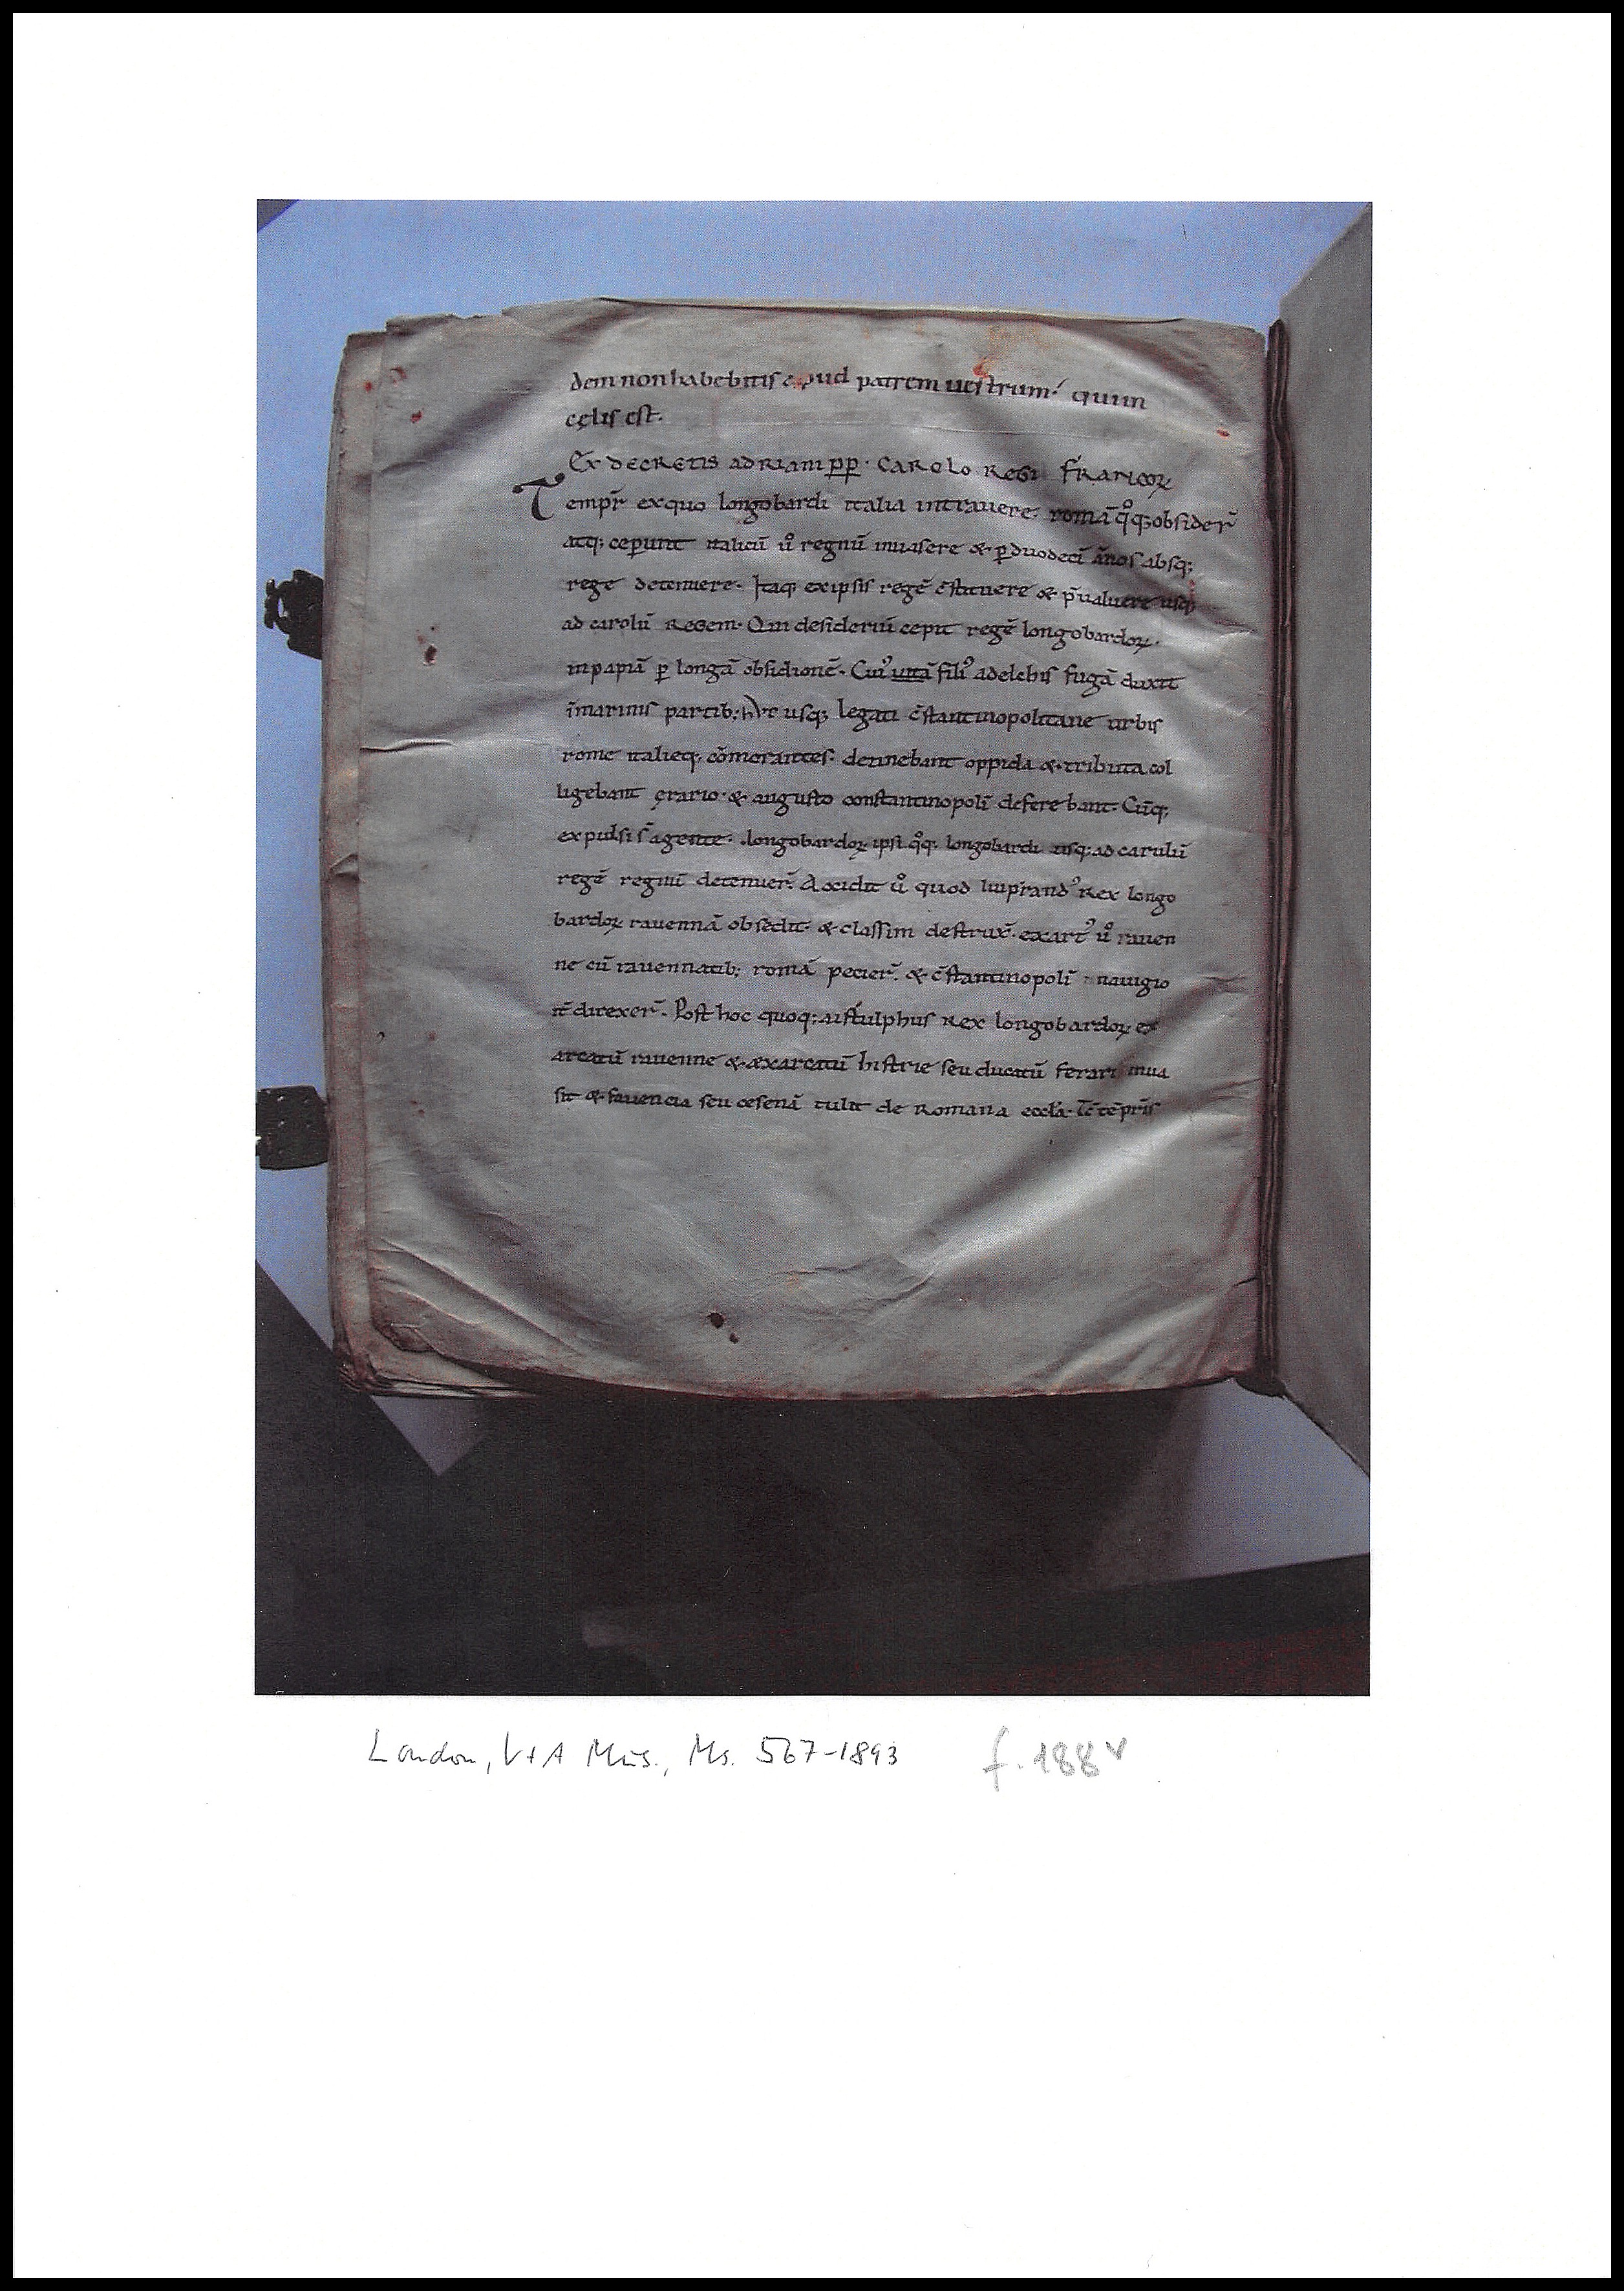 dem non habebitis apud patrem uestrum· qui in
cęlis est.
Ex decretis adriani pp̄· Carolo Regi Francoꝝ
Tempr̄ ex quo longobardi italia intrauere· romā q̊q; obsider̄
atq; ceperunt italicū ů regnū inuasere & ꝑ duodecī ānos absq;
rege detenuere· Itaq; ex ipsis regē c̄stituere & p̄ualuere usq;
ad carolū Regem· Qui desideriū cepit regē longobardoꝝ·
in papiā ꝑ longā obsidionē· Cui᾿ uitā fili᾿ adelchis fugā duxit
ī marinis partib; usq; legati c̄stantinopolitane urbis
rome italieq; cōmorantes· detinebant oppida & tributa col
ligebant ęrario· & augusto constantinopolī deferebant· Cūq;
expulsi s̄ a gente· longobardoꝝ ipsi q̊q; longobardi usq; ad carulū
regē regnū detenuer̄· Accidit ů quod liuprand᾿ Rex longo
bardoꝝ rauennā obsedit· & classim destrux̄· exart᾿ ů rauen
ne cū rauennatib; romā pecier̄· & c̄stantinopolī nauigio
it̄ direxer̄· Post hoc quoq; aistulphus Rex longobardoꝝ ex
arcatū rauenne & exarcatū histrie seu ducatū ferari inua
sit & fauencia seu cesenā tulit de Romana eccl̄a· Tc̄ tēpris
London, V+A Mus., Ms. 567-1893 f. 188v